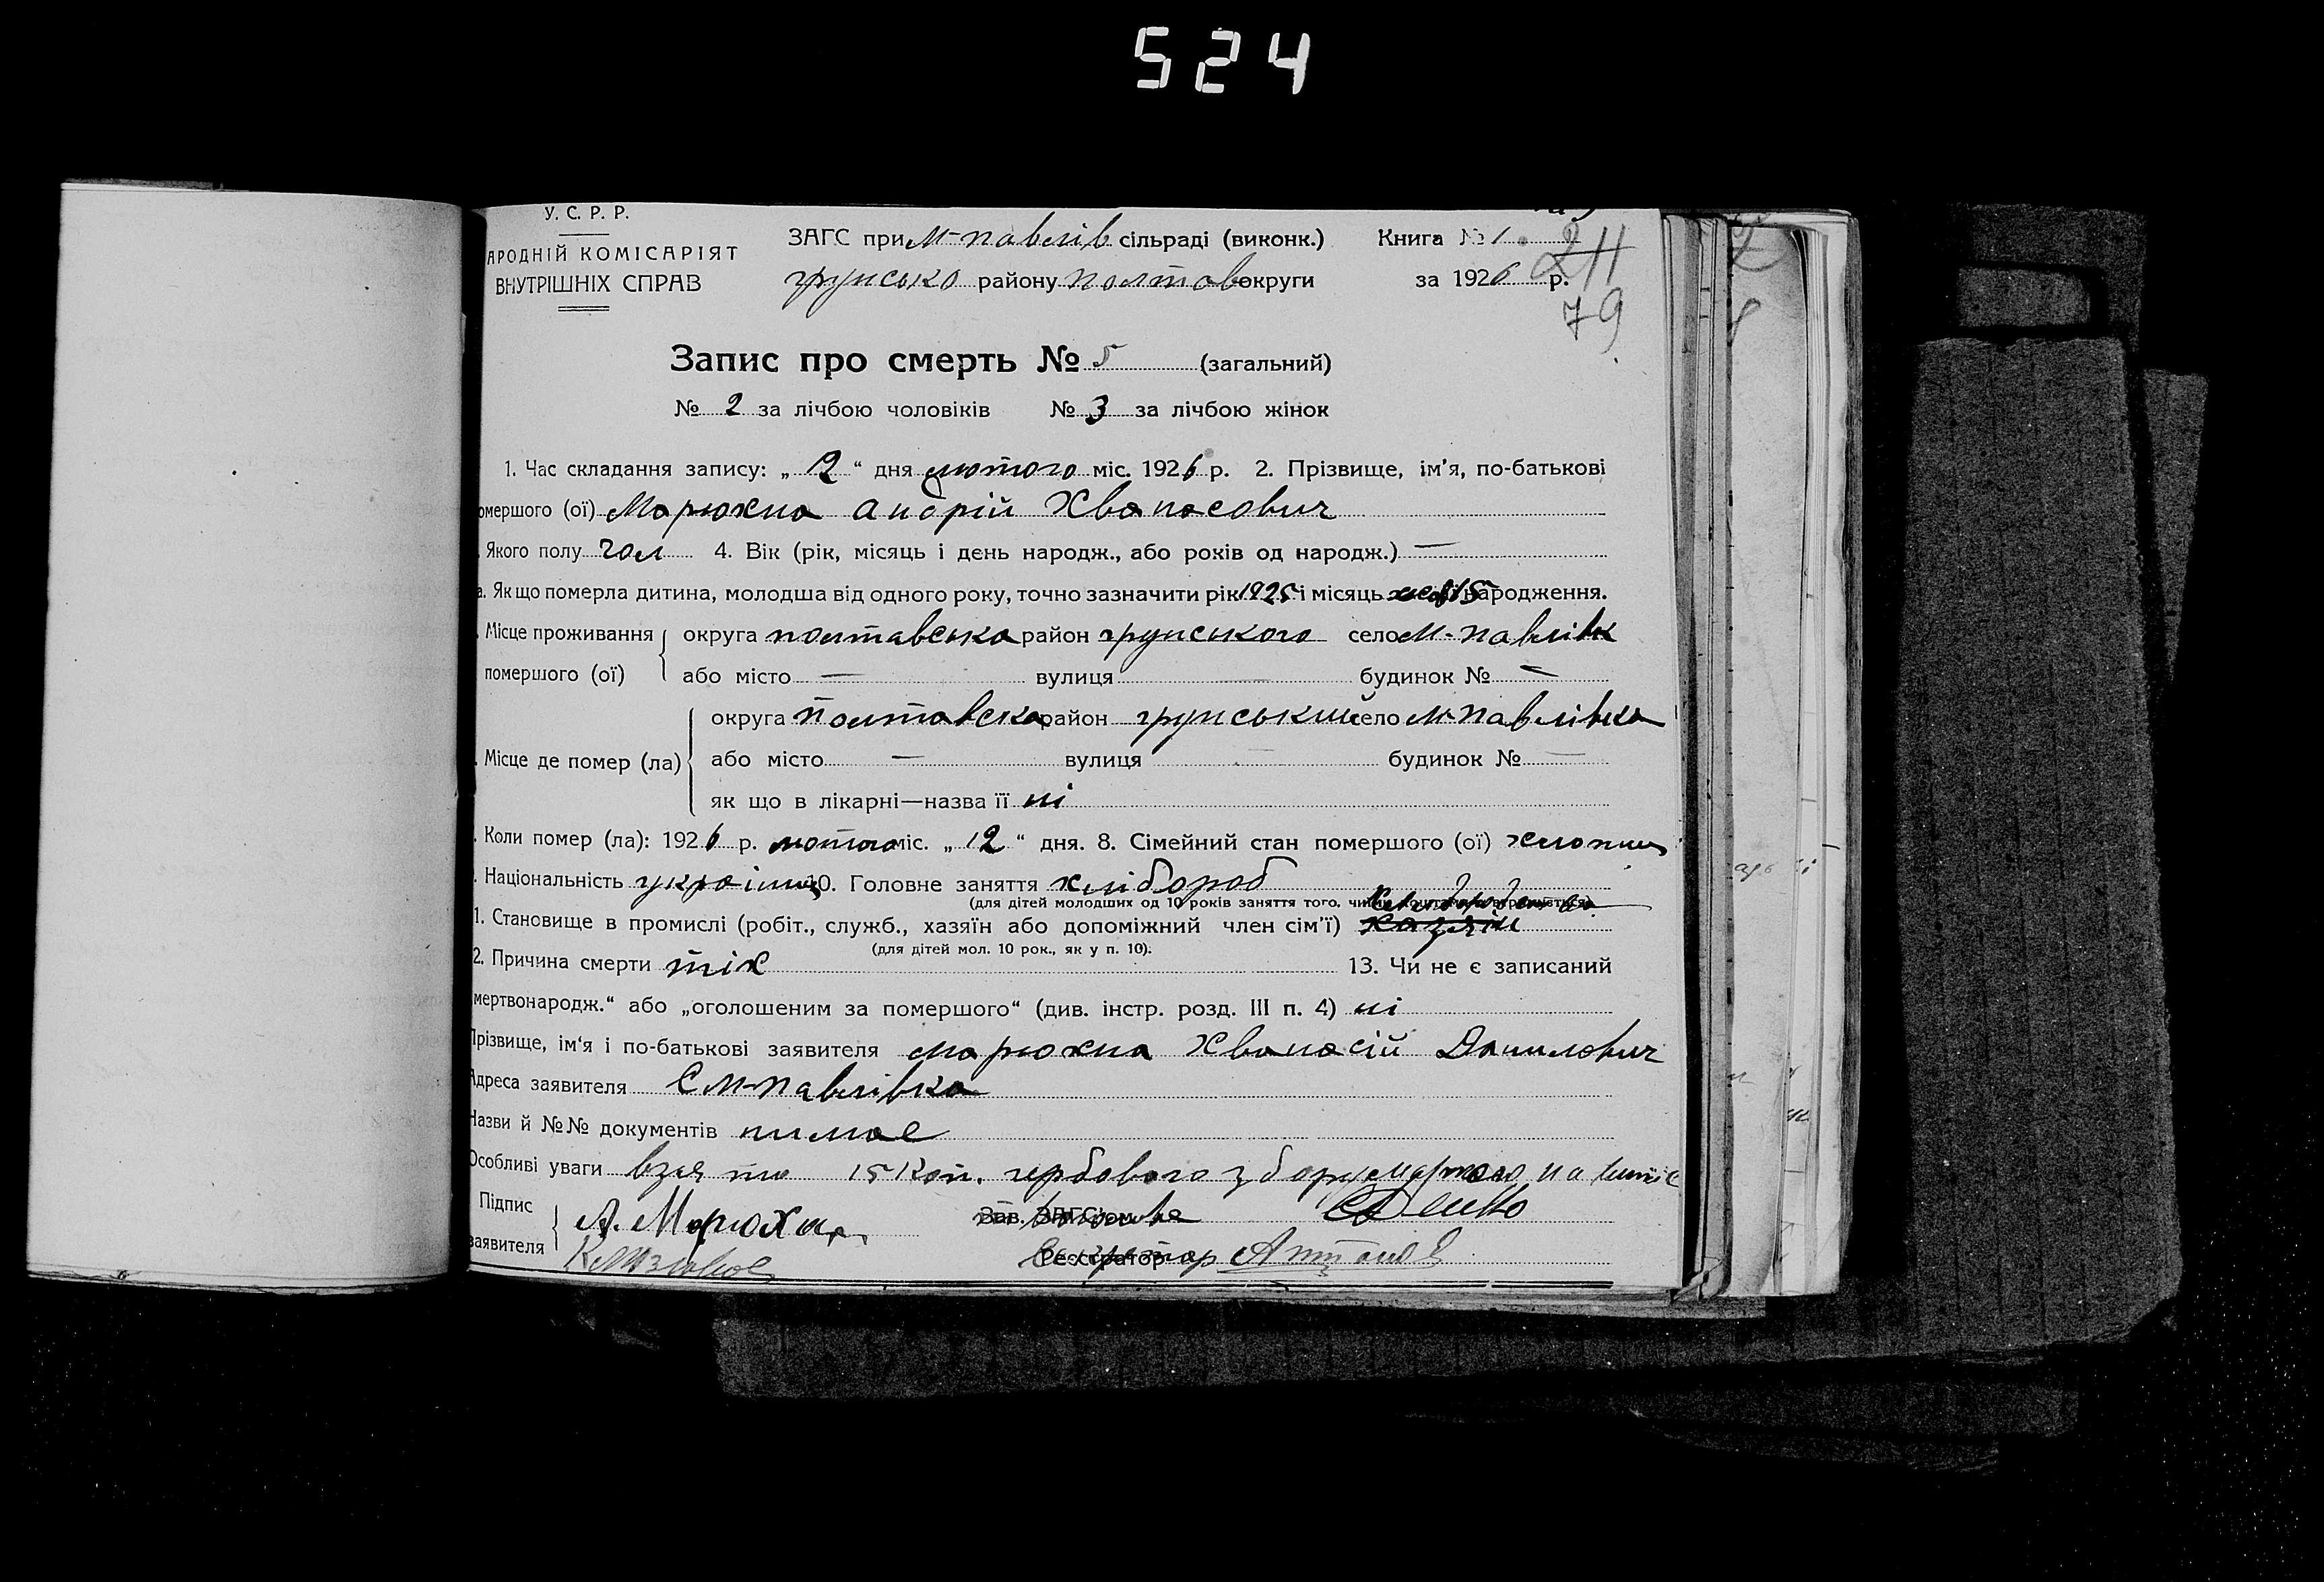 524
У. С. Р. Р.
АРОДНІЙ КОМІСАРІЯТ
ВНУТРІШНІХ СПРАВ
ЗАГС при М-павлів сільраді (виконк.) Книга № 1
грунсько району полтав округи за 1926 р.
211
79
Запис про смерть № 5 (загальний)
№ 2 за лічбою чоловіків № 3 за лічбою жінок
1. Час складання запису: „ 12 “ дня лютого міс. 1926 р. 2. Прізвище, ім'я, по-батькові
омершого (ої) Марюхна Андрій Хванасович
Якого полу чол 4. Вік (рік, місяць і день народж., або років од народж.) —
а. Якщо померла дитина, молодша від одного року, точно зазначити рік 1925 і місяць 15 народження.
Місце проживання округа полтавська район грунського село М-павлівк
помершого (ої) або місто — вулиця — будинок № —
округа полтавска район грунський село М-павлівка
Місце де помер (ла) або місто — вулиця — будинок № —
як що в лікарні—назва її ні
Коли помер (ла): 1926 р. лютого міс. „ 12 “ дня. 8. Сімейний стан помершого (ої) хлопець
Національність україниц 10. Головне заняття хлібороб
(для дітей молодших од 10 років заняття того, чиїм
1. Становище в промислі (робіт., служб., хазяїн або допоміжний член сім'ї) хазяїн
(для дітей мол. 10 рок., як у п. 10).
2. Причина смерти тік 13. Чи не є записаний
мертвонародж.“ або „оголошеним за помершого“ (див. інстр. розд. III п. 4) ні
Прізвище, ім'я і по-батькові заявителя Марюхна Хванасій Данилович
Адреса заявителя С М-павлівка
Назви й №№ документів нимае
Особливі уваги взято 15 коп. гербового збору маркою на
Підпис А. Марюхна Зав. ЗАГС'ом
заявителя Реєстратор